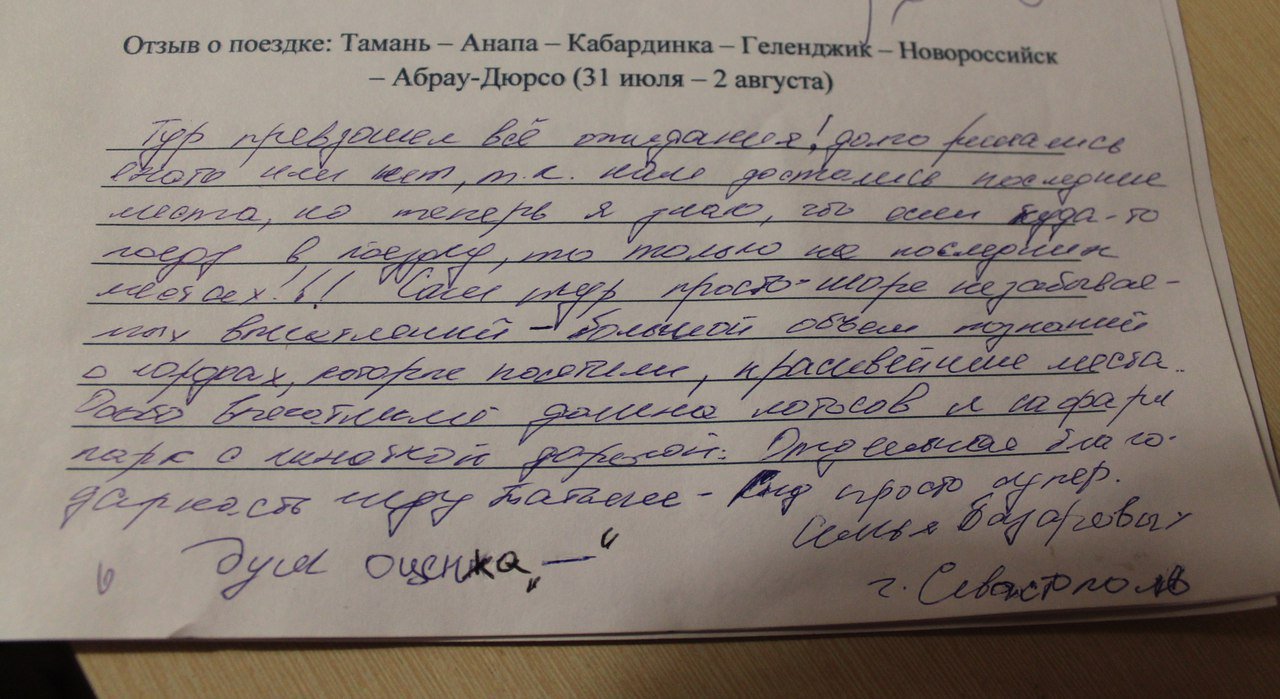 Отзыв о поездке: Тамань – Анапа – Кабардинка – Геленджик – Новороссийск
– Абрау-Дюрсо (31 июля – 2 августа)
Тур превзошел всё ожидания! долго решались
ехать или нет, т.к. нам достались последние
места, но теперь я знаю, что если куда-то
поеду в поездку, то только на последних
местах!!! Сам тур просто-море незабывае-
мых впечатлений – большой объем познаний
о городах, которые посетили, красивейшие места.
Особо впечатлила долина лотосов и сафари
парк с канаткой дорогой. Отдельная благо-
дарность гиду Татьяне - гид просто супер.
Семья Базаровых
оценка „ — “
г. Севастополь